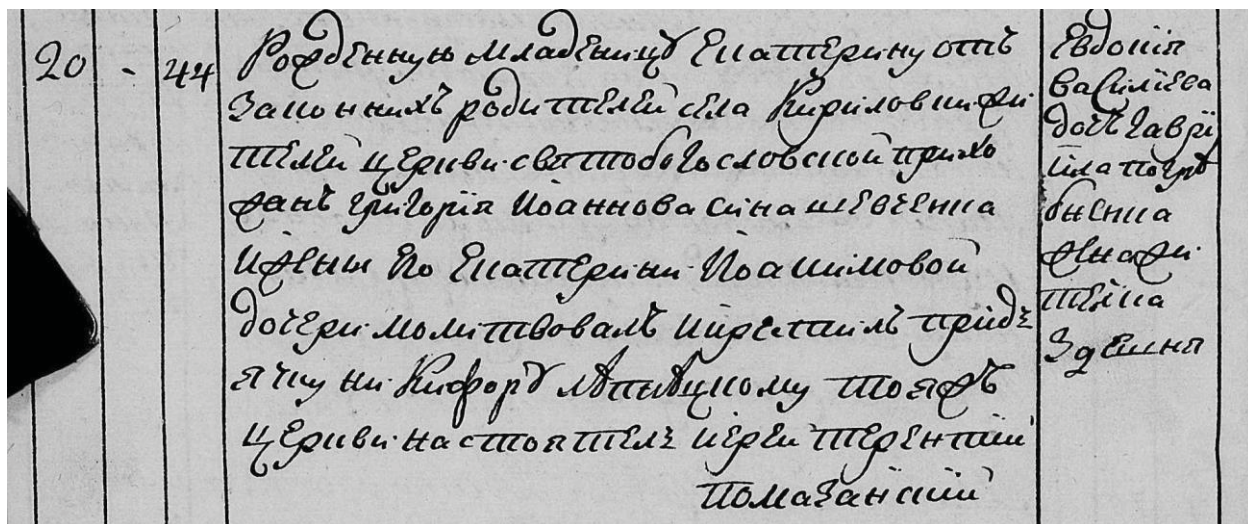 20 - 44 Рожденную младеницу Екатерину отъ
Законнихъ родителей села Кириловки жи
телей церкви святобогословской прихо
жанъ Григорія Иоаннова сина шевченка
И жены Его Екатерини Иоакимовой
дочери молитвовалъ икрестилъ придъ
ячку ни Кифору лѣпѣцкому тояжъ
церкви настоятель иерей терентий
помазанский
Евдокія
василіева
дочь гаврі
ила погрѣ
бненка
жена жи
телка
здешня